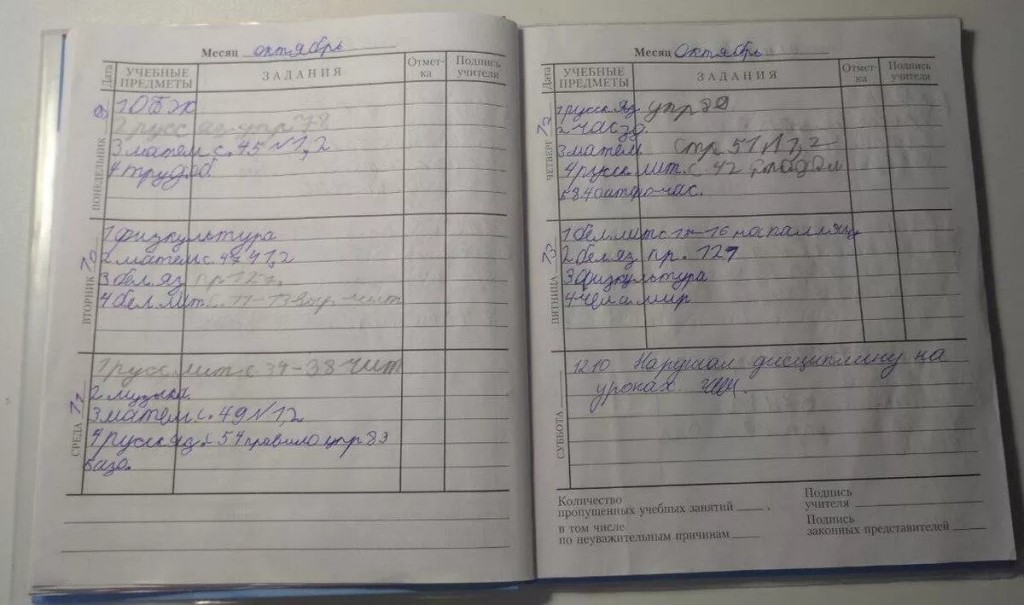 Месяц октябрь
Дата
УЧЕБНЫЕ ПРЕДМЕТЫ
ЗАДАНИЯ
Отмет-ка
Подпись учителя
ПОНЕДЕЛЬНИК 9
1 ОБЖ
2 русс яз упр 78
3 матем с. 45 N 1, 2
4 труд об.
ВТОРНИК 10
1 физкультура
2 матем с 47 N 1,2
3 бел. яз пр 127.
4 бел. лит с. 11-13 выр. чит
СРЕДА 11
1 русс лит. с 34-38 чит
2 музыка
3 матем с. 49 N 1,2
4 русск яз с 54 правило упр 83
5
Месяц Октябрь
Дата
УЧЕБНЫЕ ПРЕДМЕТЫ
ЗАДАНИЯ
Отмет-ка
Подпись учителя
ЧЕТВЕРГ 12
1 русск яз упр 89
2 час зд.
3 матем. стр 51 N 1, 2
4 русск лит. с 42
час.
ПЯТНИЦА 13
1 бел. лит с 16 на памяць
2 бел яз пр. 127
3 физкультура
4 чел и мир
СУББОТА
12.10 Нарушал дисциплину на
уроках
Количество
пропущенных учебных занятий
в том числе
по неуважительным причинам
Подпись
учителя
Подпись
законных представителей